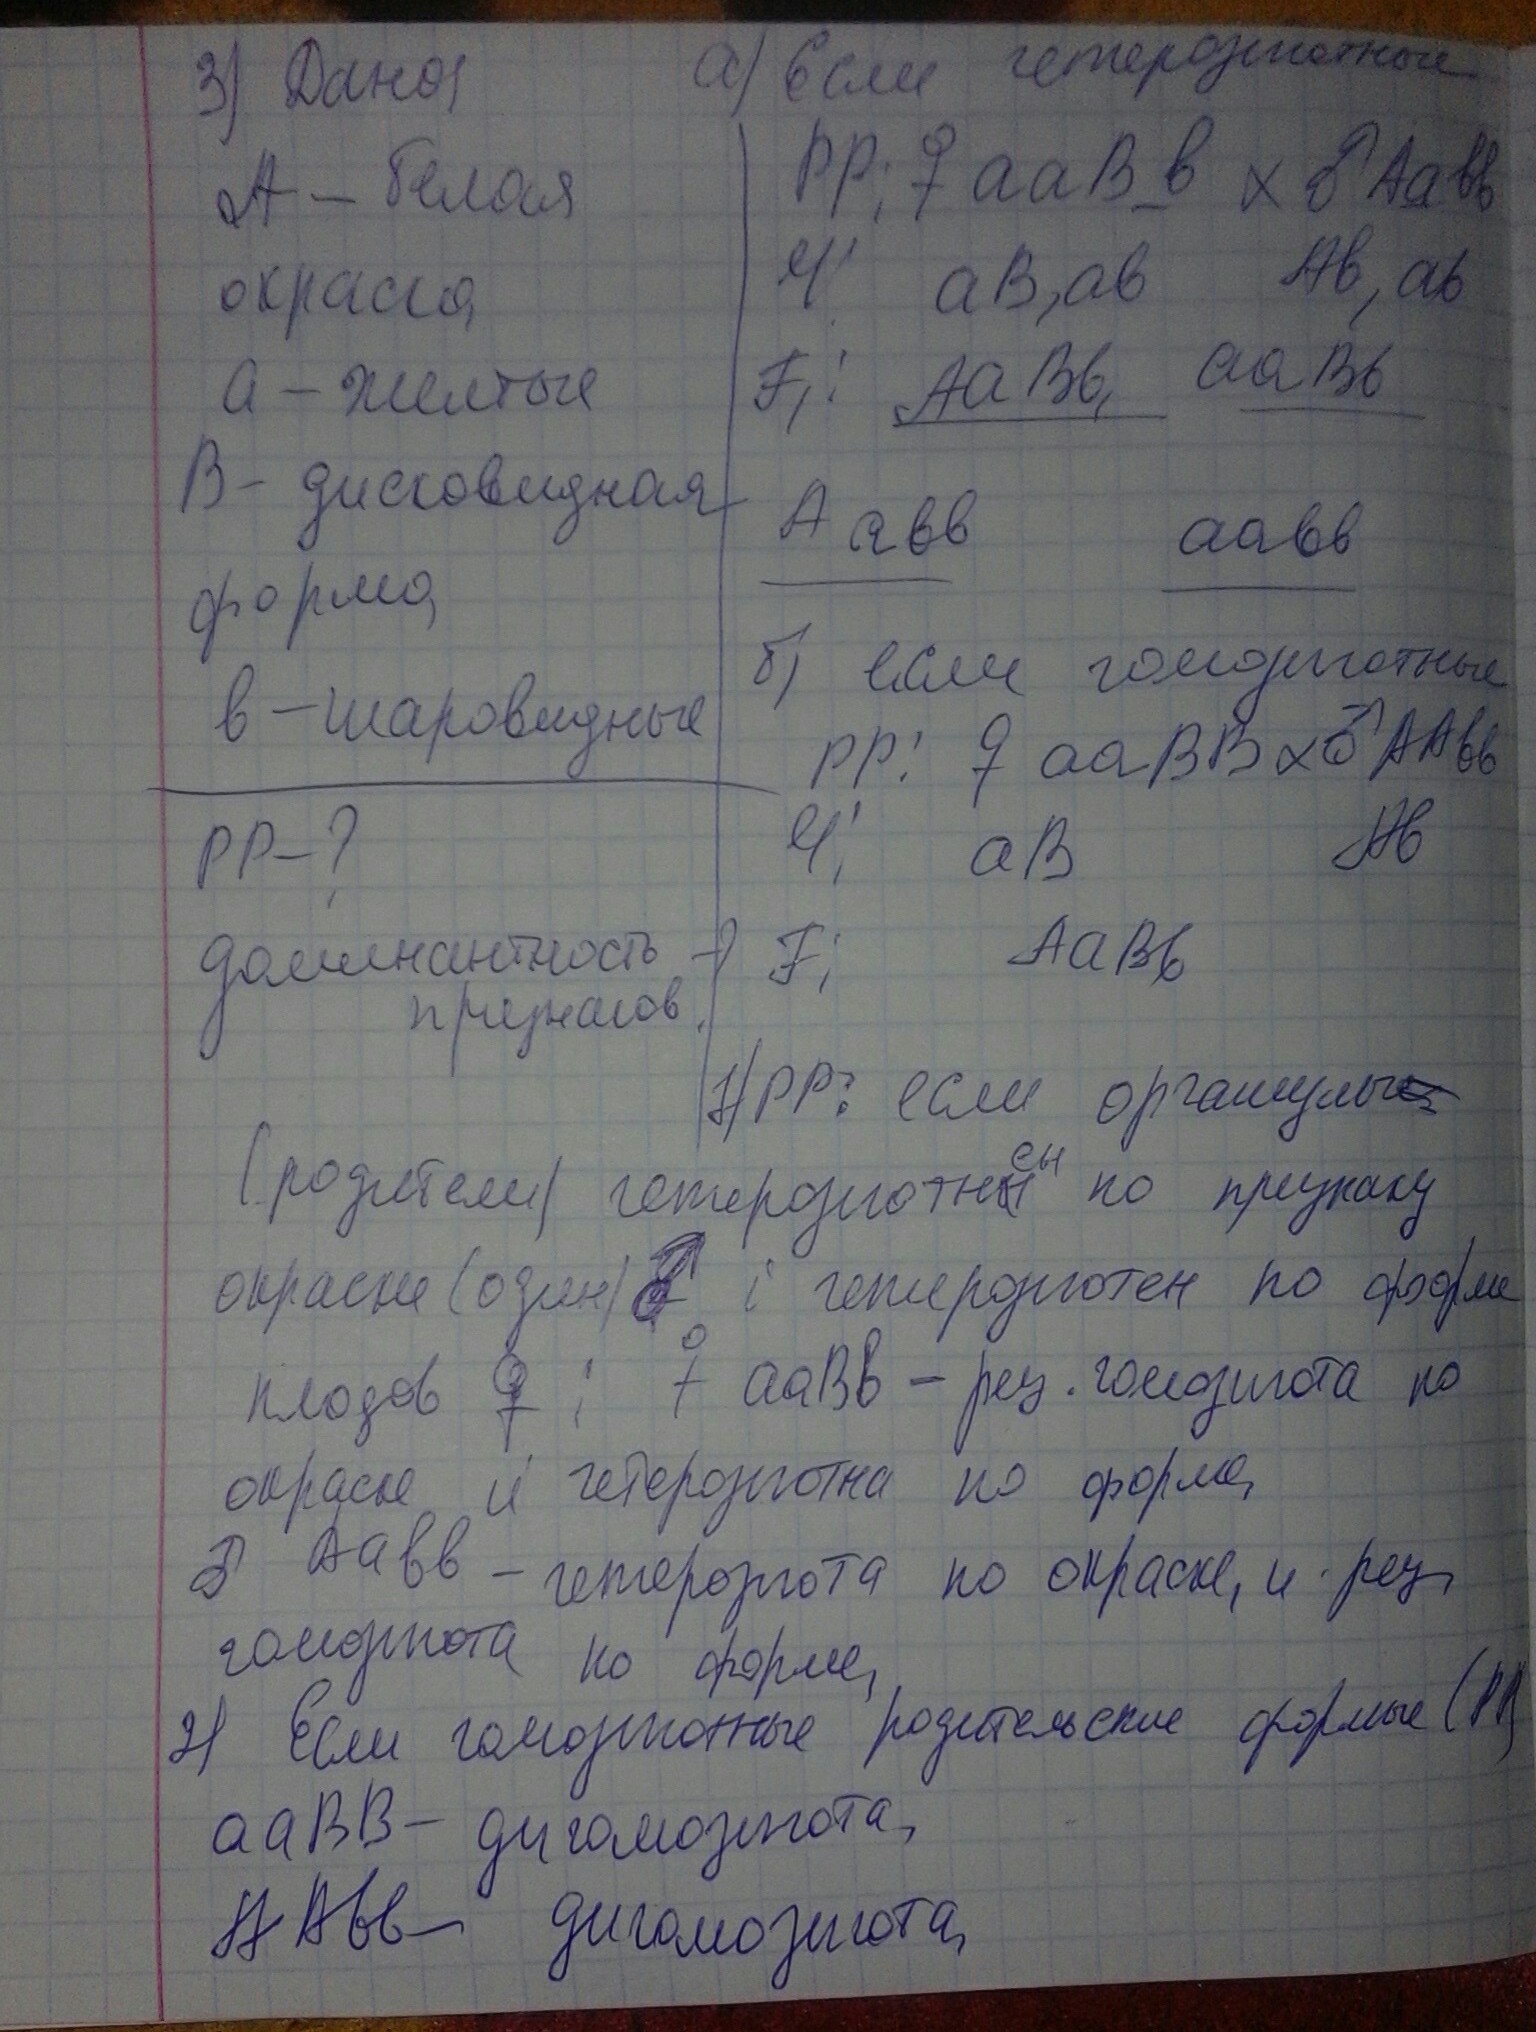 3) Дано:
А – белая
окраска
а – желтые
В – дисковидная
форма
в – шаровидные
РР – ?
доминантность – ?
признаков
а) Если гетерозиготные
РР: ♀ ааВв х ♂ Аавв
Ч: аВ, ав Ав, ав
F₁: АаВв, ааВв
Аавв аавв
б) если гомозиготные
РР: ♀ ааВВ х ♂ ААвв
Ч: аВ Ав
F: АаВв
1) РР: если организмы
(родители) гетерозиготны по признаку
окраске (один) ♂ ; гетерозиготен по форме
плодов ♀ ; ♀ ааВв – рец. гомозигота по
окраске и гетерозиготна по форме,
♂ Аавв – гетерозигота по окраске, и рец.
гомозигота по форме,
2) Если гомозиготные родительские формы (РР)
ааВВ – дигомозигота,
ААвв – дигомозигота,